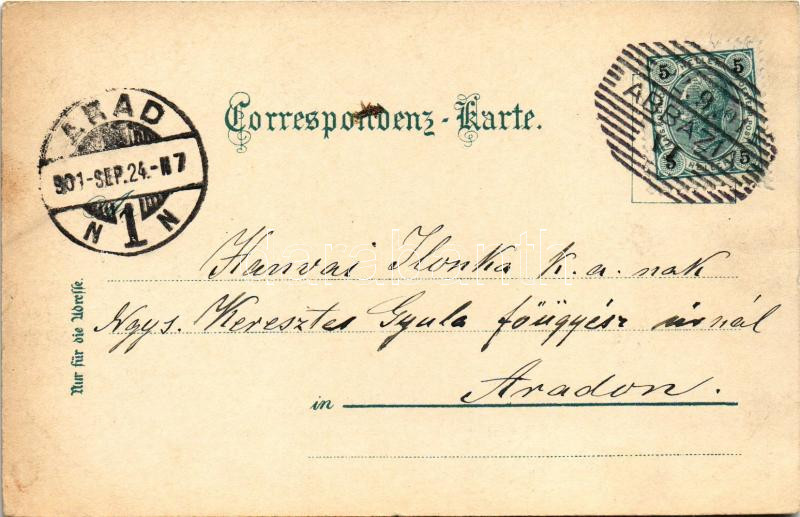 Correspondenz-Karte.
ARAD
901-SEP.24.-N7
N 1 N
5 HELLER 5
ABBAZIA
5 5
Hanvai Ilonka k. a. nak
Ngys. Keresztes Gyula főügyész úrnál
in Aradon.
Nur für die Adresse.